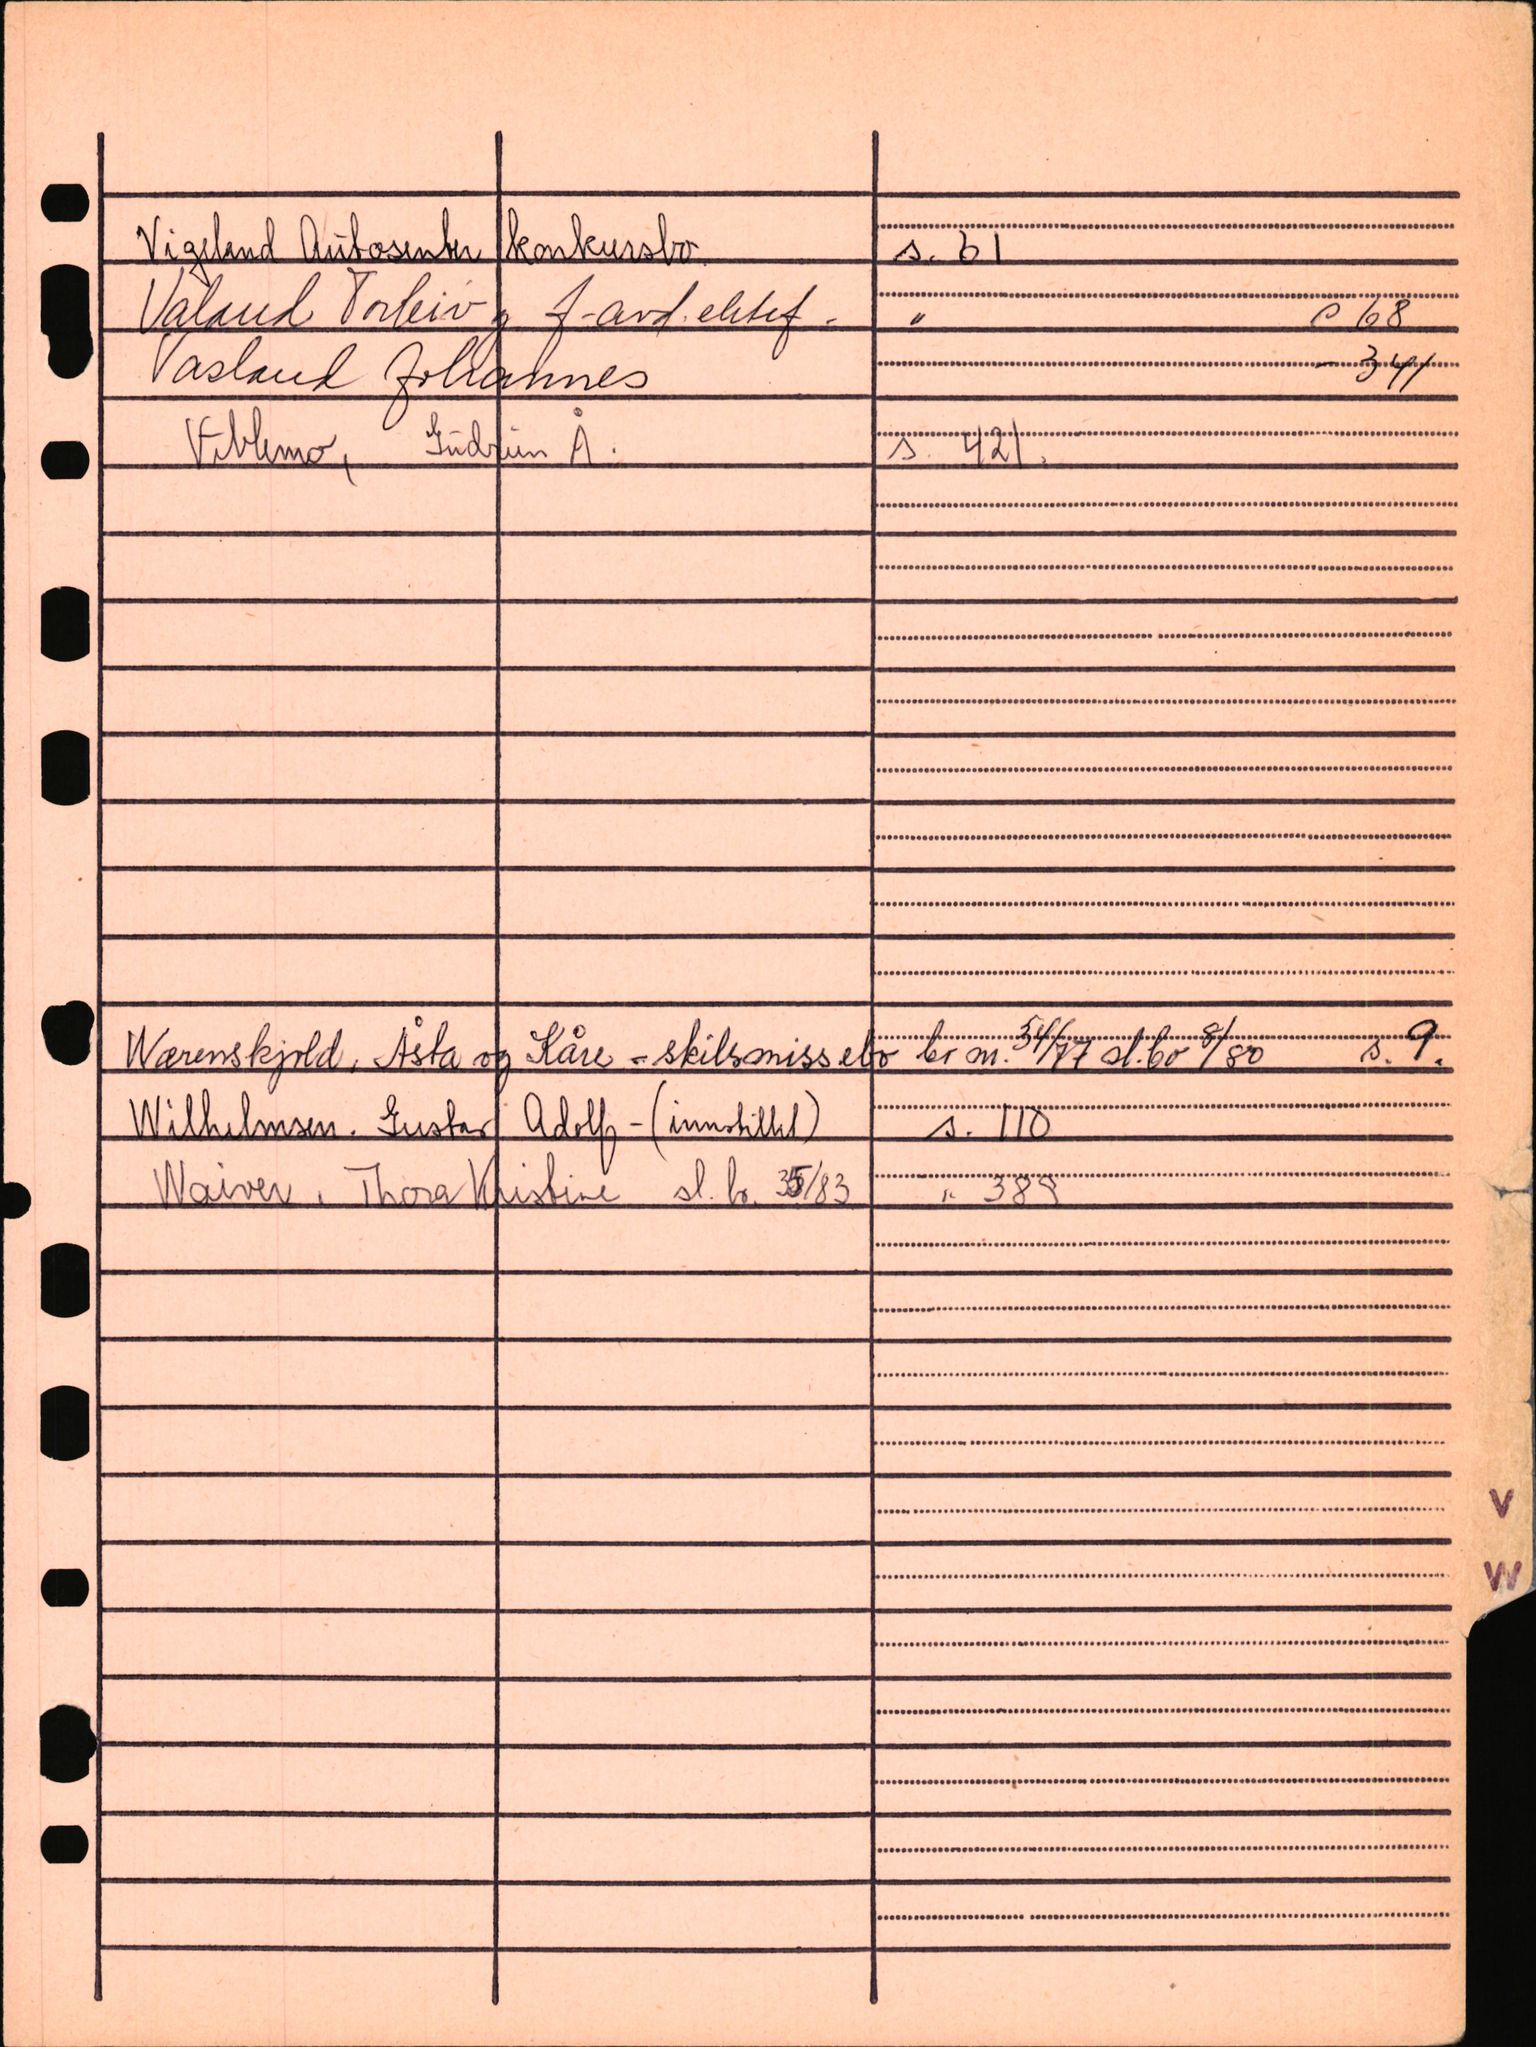 Vigeland Autosenter konkursbo. s. 61
Valand Torleiv og f-avd. ektef. " s 68
Vasland Johannes - 341
Viblemo, Gudrun Å. s. 421.
Wærenskjold, Åsta og Kåre - skilsmissebo br nr. 54/77 sl. bo 8/80 s. 9.
Wilhelmsen. Gustav Adolf - (innstillet) s. 110
Waiver, Thora Kristine sl. bo. 35/83 "
V
W